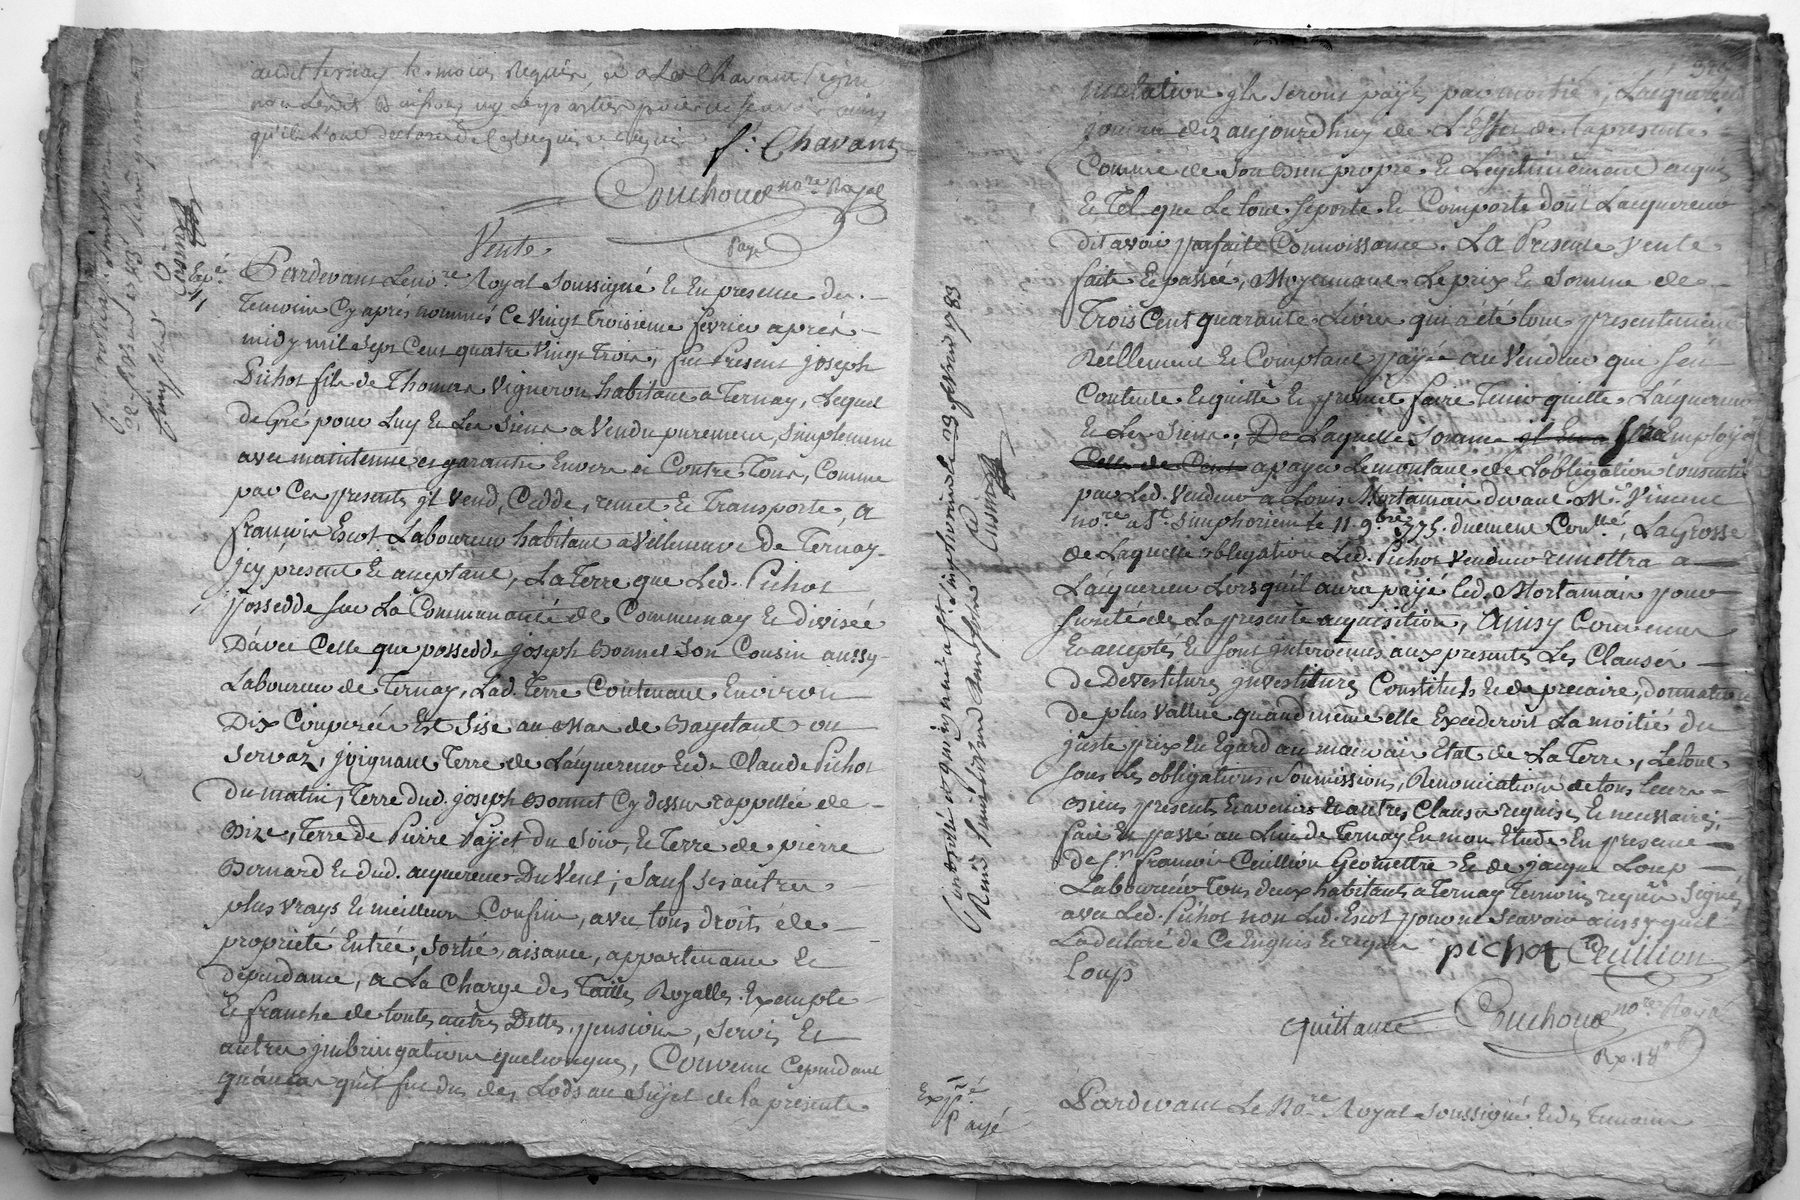 audit ternay temoins requis, et led Chavant signé
non les dit
qu'ils ont declaré de ce enquis et requis
f: Chavant
Couchoud no.re Royal
Payé
Vente
Exp.é
Pardevant Le no.re Royal Soussigné Et En presence des
Temoins Cy après nommés Ce vingt troisieme fevrier après
midy mil sept Cent quatre vingt trois, fut Present joseph
Pichot fils de Thomas Vigneron habitant a Ternay, Lequel
de Gré pour Luy Et Les Siens a Vendu purement, Simplement
avec maintenue et garantie Envers et Contre Tous, Comme
par Ces presentes il vend, Cedde, remet Et Transporte, a
francois Escot Laboureur habitant a Villeneuve De Ternay
jcy present Et acceptant, La Terre que Led. Pichot
possedde sur La Communauté de Communay Et divisée
D'avec Celle que possedde joseph Bonnet Son Cousin aussy
Laboureur de Ternay, Lad. Terre Contenant Environ
Dix Couperées Est Sise au Mas de Bayetant ou
Servaz, joignant Terre de L'acquereur Et de Claude Pichot
Du matin, Terre dud. joseph Bonnet Cy dessus rappellée de
Bize, Terre de Pierre Payet du Soir, Et Terre de pierre
Bernard Et dud. acquereur Du Vent; Sauf ses autres
plus vrays Et meilleurs Confins, avec tous droits de
proprieté Entrée, Sortie, aisance, appartenance Et
dépendance, a La Charge des Tailles Royalles Exempte
Et franche de toutes autres Dettes, pensions, Servis Et
autres jmbringations quelconques, Convenu Cependant
qu'au cas qu'il fut dus des Lods au Sujet de la presente
mutation ils seront payés par moitié, L'acquereur
jouira dez aujourd'huy de L'Effet de la presente
Comme de Son Bien propre Et Legitimement acquis
Et Tel que Le tout se porte Et Comporte dont L'acquereur
dit avoir parfaite Connoissance. La Presente vente
faite Et passée, Moyennant Le prix Et Somme de
Trois Cent quarante Livres qui a été tout presentement
Réellement Et Comptant payée au Vendeur que s'en
Contente Et quitte Et promet faire Tenir quitte L'acquereur
Et Les Siens, De Laquelle Somme Employé
Celle de Cent a payer Le montant de L'obligation Consentie
par Led. Vendeur a Louis Mortamais devant M.e Vincent
no.re a S.t Simphorien le 11 9.bre 1775. duement Con.llé, La Grosse
de Laquelle obligation Led. Pichot Vendeur remettra a
L'acquereur Lorsqu'il aura payé Led. Mortamais pour
sureté de La presente acquisition, Ainsy Convenu
Et accepté Et sont intervenues aux presentes Les Clauses
de Devestitures jnvestitures Constituts Et de precaire, donnation
de plus vallue quand même elle Excederoit La moitié du
juste prix En Egard au mauvais Etat de La Terre, Le tout
sous Les obligations, Soumissions, Renonciations de tous leurs
Biens presents Et avenirs Et autres Clauses requises Et necessaires,
fait Et passé au Lieu de Ternay En mon Etude En presence
De s.r francois Cuillion Géomettre Et de jacque Loup
Laboureur Tous deux habitants a Ternay Temoins requis Signés
avec Led. Pichot non Led. Escot pour ne Scavoir ainsy qu'il
La declaré de Ce Enquis Et requis pichot Cuillion
Loup
Couchoud no.re Royal
Rx. 18
quittance
Exp.é
Payé
Pardevant Le No.re Royal Soussigné Et des Temoins